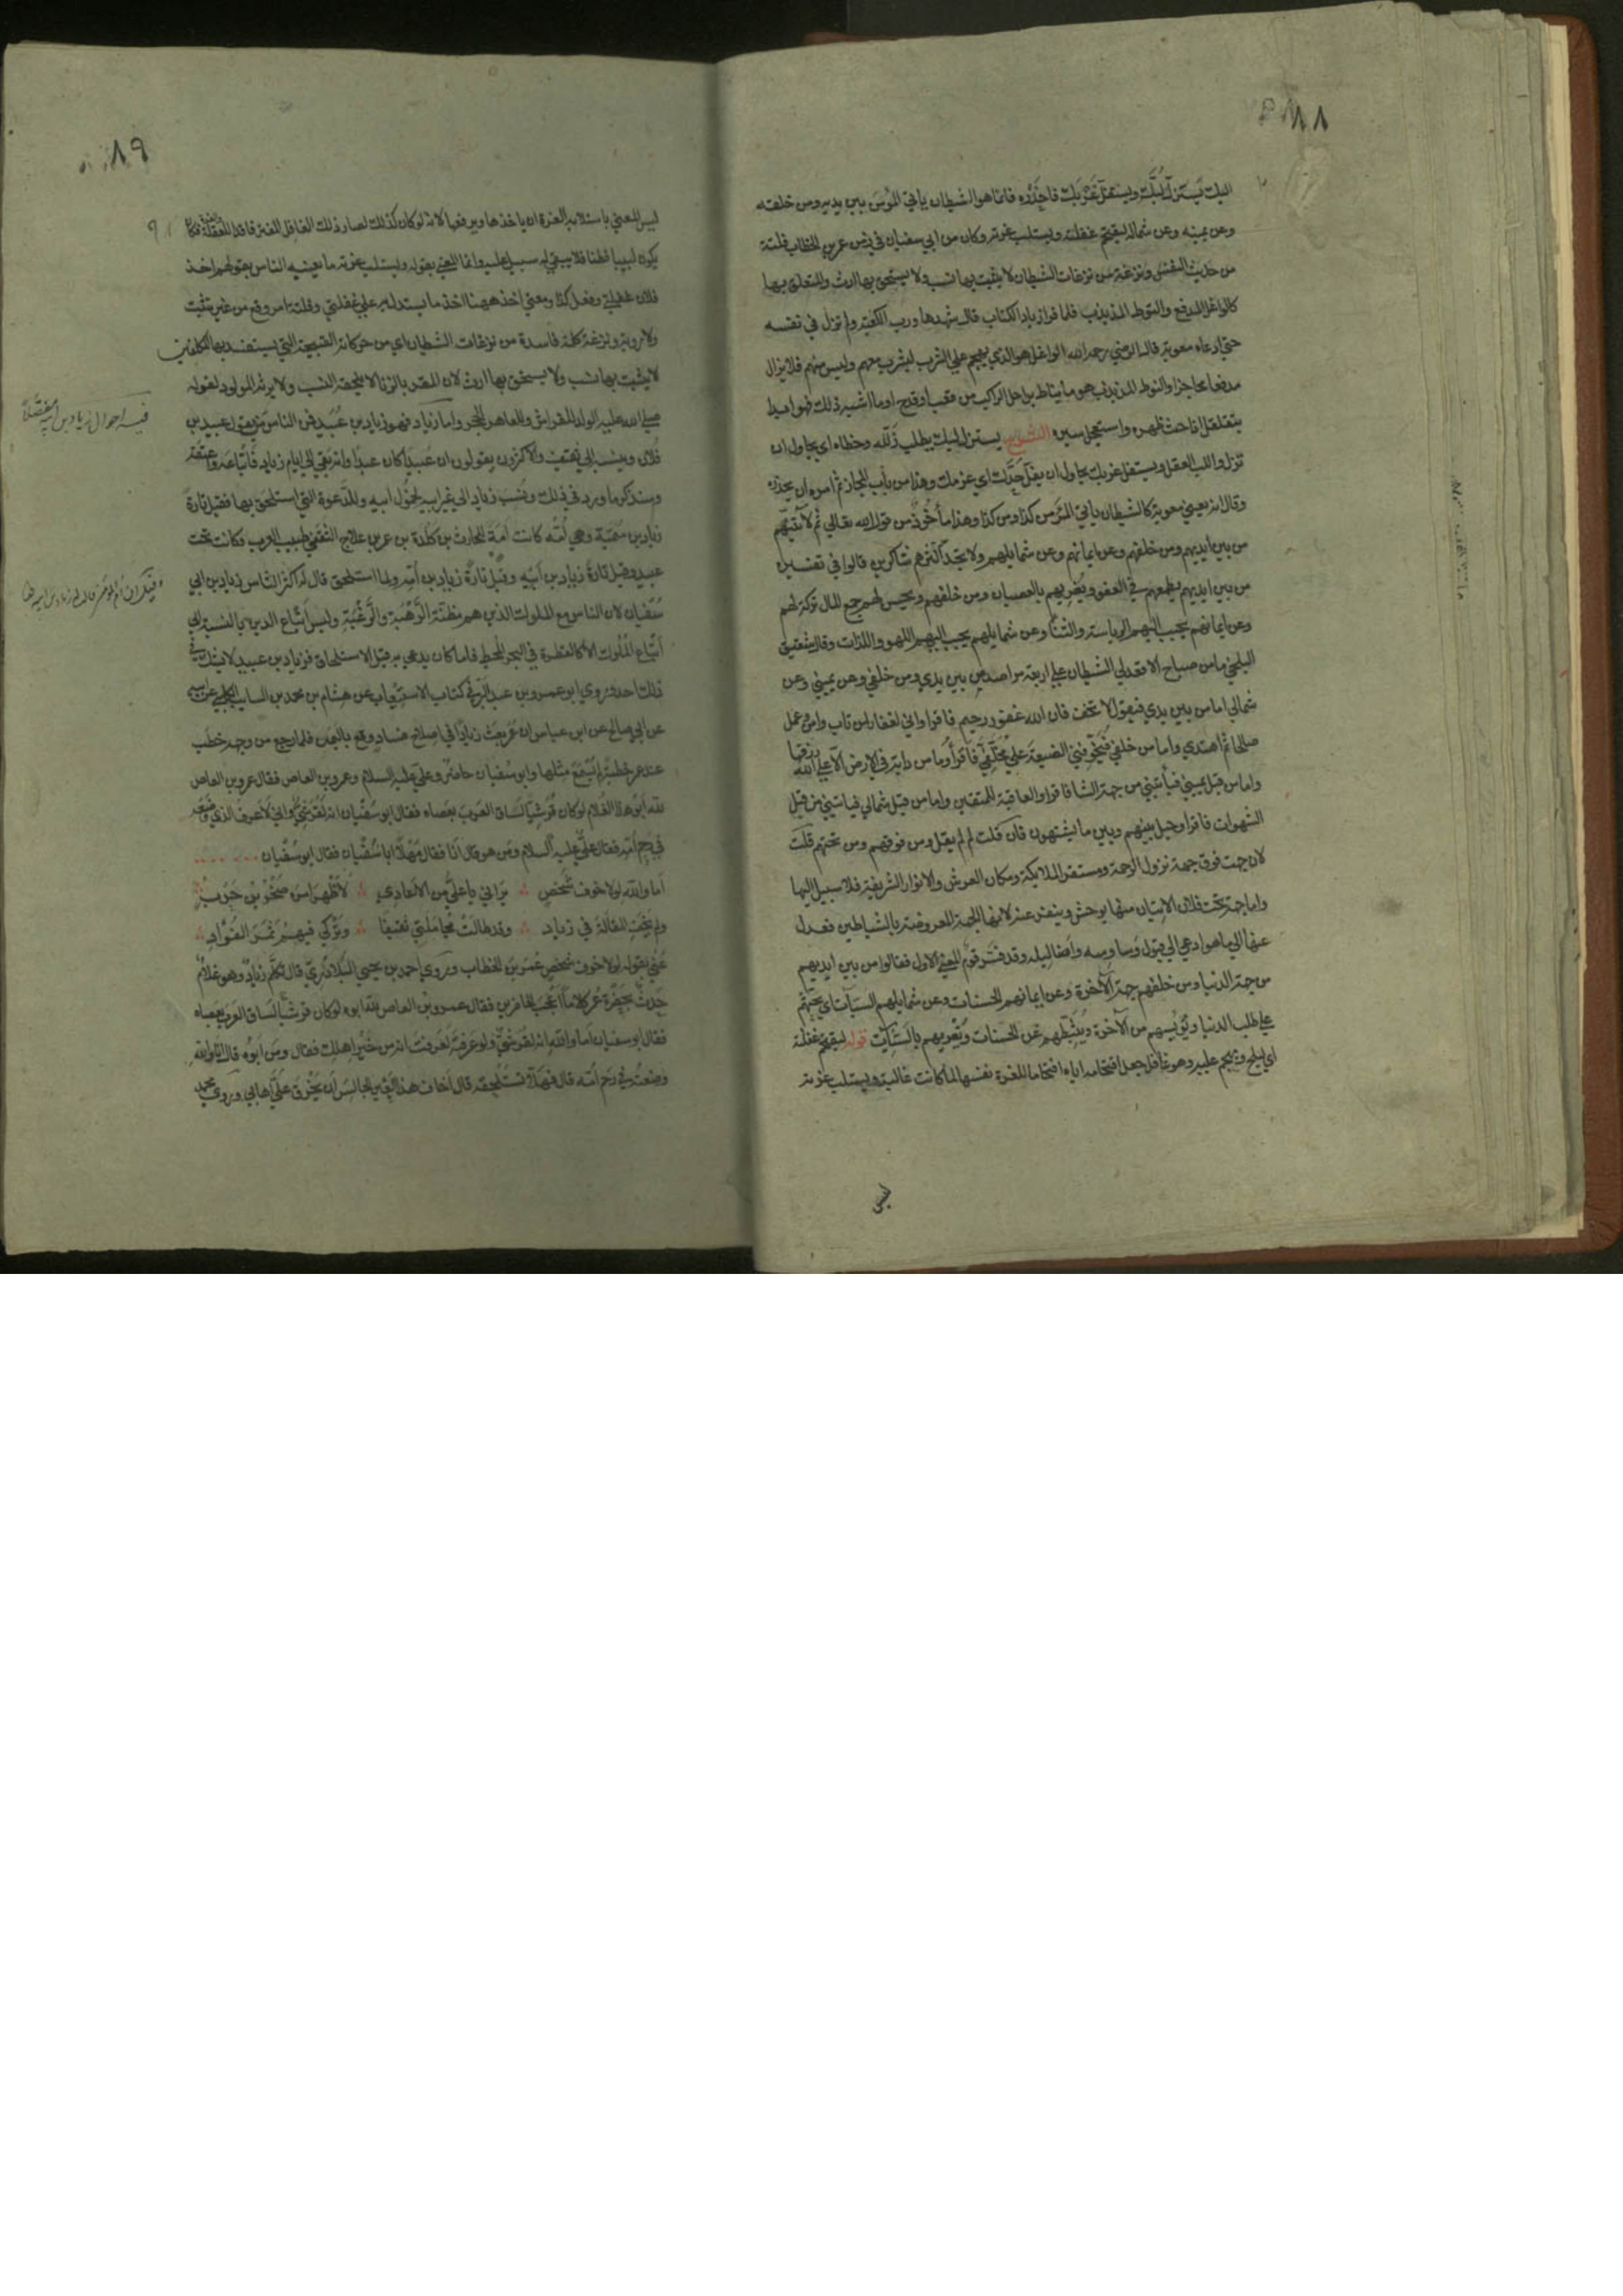 ٨٨
اليك يستزل لبّك ويستفل غربك فاحذره فانما هو الشيطان ياتي المؤمن من بين يديه ومن خلفه
وعن يمينه وعن شماله ليقتحم غفلته ويستلب غرته وكان من ابي سفيان في زمن عمر بن الخطاب فلتة
من حديث النفس ونزغة من نزغات الشيطان لا يثبت بها نسب ولا يستحق بها ارث والمتعلق بها
كالواغل المدفع والنوط المذبذب فلما قرا زياد الكتاب قال شهد بها ورب الكعبة ولم تزل في نفسه
حتى ادعاه معوية قال الرضي رحمه الله الواغل هو الذي يهجم على الشرب ليشرب معهم وليس منهم فلا يزال
مدفعا محاجزا والنوط المذبذب هو ما يناط برحل الراكب من قعب او قدح او ما اشبه ذلك فهو ابدا
يتقلقل اذا حث ظهره واستعجل سيره الشرح يستزل لبك يطلب زلله وخطاه اي يحاول ان
تزل واللب العقل ويستفل غربك يحاول ان يفل حدّك اي عزمك وهذا من باب المجاز ثم امره ان يحذره
وقال انه يعني معوية كالشيطان ياتي المرء من كذا ومن كذا وهذا مأخوذ من قول الله تعالى ثم لآتينهم
من بين ايديهم ومن خلفهم وعن ايمانهم وعن شمايلهم ولا تجد اكثرهم شاكرين قالوا في تفسيره
من بين ايديهم يطمعهم في العفو ويغريهم بالعصيان ومن خلفهم ويحسن لهم جمع المال تركه لهم
وعن ايمانهم يحبب اليهم الرياسة والثنا وعن شمايلهم يحبب اليهم اللهو واللذات وقال شقيق
البلخي ما من صباح الا قعد لي الشيطان على اربعة مراصد من بين يدي ومن خلفي وعن يميني وعن
شمالي اما من بين يدي فيقول لا تخف فان الله غفور رحيم فاقرا واني لغفار لمن تاب وامن وعمل
صالحا ثم اهتدى واما من خلفي فيخوفني الضيعة على مخلّفي فاقرأ وما من دابة في الارض الا على الله رزقها
واما من قبل يميني فيأتيني من جهة الثنا فاقرا والعاقبة للمتقين واما من قبل شمالي فياتيني من قبل
الشهوات فاقرا وحيل بينهم وبين ما يشتهون فان قلت لم لم يقل ومن فوقهم ومن تحتهم قلت
لان جهة فوق جهة نزول الرحمة ومستقر الملايكة ومكان العرش والانوار الشريفة فلا سبيل اليها
واما جهة تحت فلان الاتيان منها يوحش وينفر عنه لانها الجهة المعروفة بالشياطين فعدل
عنها الى ما هو ادعى الى قبول وساوسه واضاليله وقد فسر قوم المعنى الاول فقالوا من بين ايديهم
من جهة الدنيا ومن خلفهم جهة الآخرة وعن ايمانهم الحسنات وعن شمايلهم السيآت اي يحثهم
على طلب الدنيا ويؤيسهم من الآخرة ويثبطهم عن الحسنات ويغريهم بالسيئات قوله ليقتحم غفلته
اي ليلج ويهجم عليه وهو غافل جعل اقتحامه اياه اقتحاما للغرة نفسها لما كانت غالبة ويستلب غرته
ليس
٨٩
ليس المعنى باستلابه الغرة ان ياخذها ويرفعها لانه لو كان كذلك لصار ذلك الغافل المغتر فاقدا للغفلة
يكون لبيبا فطنا فلا يبقى له سبيل عليه وانما المعنى بقوله ويستلب غرته ما يعنيه الناس بقولهم اخذ
فلان غفلتي وفعل كذا ومعنى اخذ ههنا اخذ ما يستدل به على غفلتي وفلتة امر وقع من غير تثبت
ولا روية ونزغة كلمة فاسدة من نزغات الشيطان اي من حركاته القبيحة التي يستفسد بها المكلفين
لا يثبت بها نسب ولا يستحق بها ارث لان المقر بالزنا لا يلحقه النسب ولا يرثه المولود لقوله
صلى الله عليه الولد للفراش وللعاهر الحجر واما زياد فهو زياد بن عُبَيد فمن الناس من يقول عبيد بن
فلان وينسبه الى ثقيف والاكثرون يقولون ان عبيدا كان عبدا وانه بقي الى ايام زياد فابتاعه واعتقه
وسنذكر ما ورد في ذلك ونسب زياد الى غير ابيه لخمول ابيه وللدعوة التي استلحق بها فقيل تارة
زياد بن سمية وهي امّه كانت امة للحارث بن كلدة بن عمرو بن علاج الثقفي طبيب العرب وكانت تحت
عبيد وقيل تارة زياد بن ابيه وقيل تارة زياد بن امّه ولما استلحق قال له اكثر الناس زياد بن ابي
سفيان لان الناس مع الملوك الذين هم مظنّة الرَّهْبَة والرَّغْبَة وليس اتباع الدين بالنسبة الى
اتباع الملوك الا كالقطرة في البحر المحيط فاما ما كان يدعى به قبل الاستلحاق فزياد بن عبيد لا يشك في
ذلك احد وروى ابو عمر بن عبد البر في كتاب الاستيعاب عن هشام بن محمد بن السايب الكلبي عن ابيه
عن ابي صالح عن ابن عباس ان عمر بعث زيادا في اصلاح فساد وقع باليمن فلما رجع من وجهه خطب
عند عمر خطبة لم يُسمَع مثلها وابو سفيان حاضر وعلي عليه السلام وعمرو بن العاص فقال عمرو بن العاص
لله ابو هذا الغلام لو كان قُرشيا لساق العرب بعصاه فقال ابو سفيان انه لقرشي واني لاعرف الذي وضعه
في رحم امّه فقال علي عليه السلام ومن هو قال انا فقال مهلا ابا سفيان فقال ابو سفيان
اما والله لولا خوف شخص يراني يا علي من الاعادي لاظهر امره صخر بن حرب
ولم يخف المقالة في زياد وقد طالت مجاملتي ثقيفا وتركي فيهم ثمر الفؤاد
عنى بقوله لولا خوف شخص عمر بن الخطاب وروى احمد بن يحيى البلاذري قال تكلم زياد وهو غلام
حدث بحضرة عمر كلاما اعجب الحاضرين فقال عمرو بن العاص لله ابوه لو كان قرشيا لساق العرب بعصاه
فقال ابو سفيان اما والله انه لقرشي ولو عرفته لعرفت انه من خير اهلك فقال ومن ابوه قال انا والله
وضعته في رحم امّه قال فهلا تستلحقه قال اخاف هذا العير الجالس ان يخرق علي اهابي وروى محمد
فيه احوال زياد بن ابيه مفصلاً